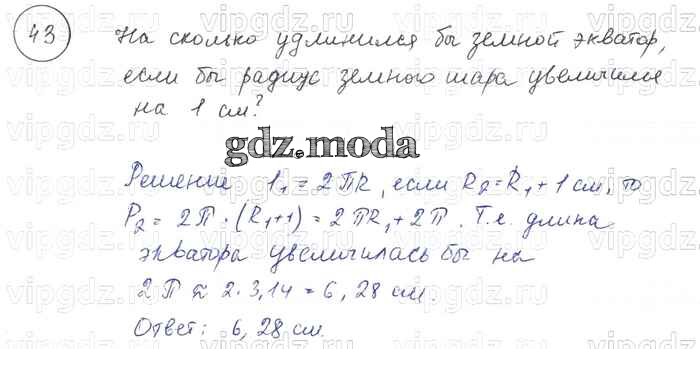 43
На сколько удлинился бы земной экватор,
если бы радиус земного шара увеличили
на 1 см?
gdz.moda
Решение l₁ = 2πR, если R₂ = R₁ + 1 см, то
P₂ = 2π · (R₁+1) = 2πR₁ + 2π. Т.е. длина
экватора увеличилась бы на
2π ≈ 2·3,14 = 6,28 см.
Ответ: 6,28 см.
vipgdz.com